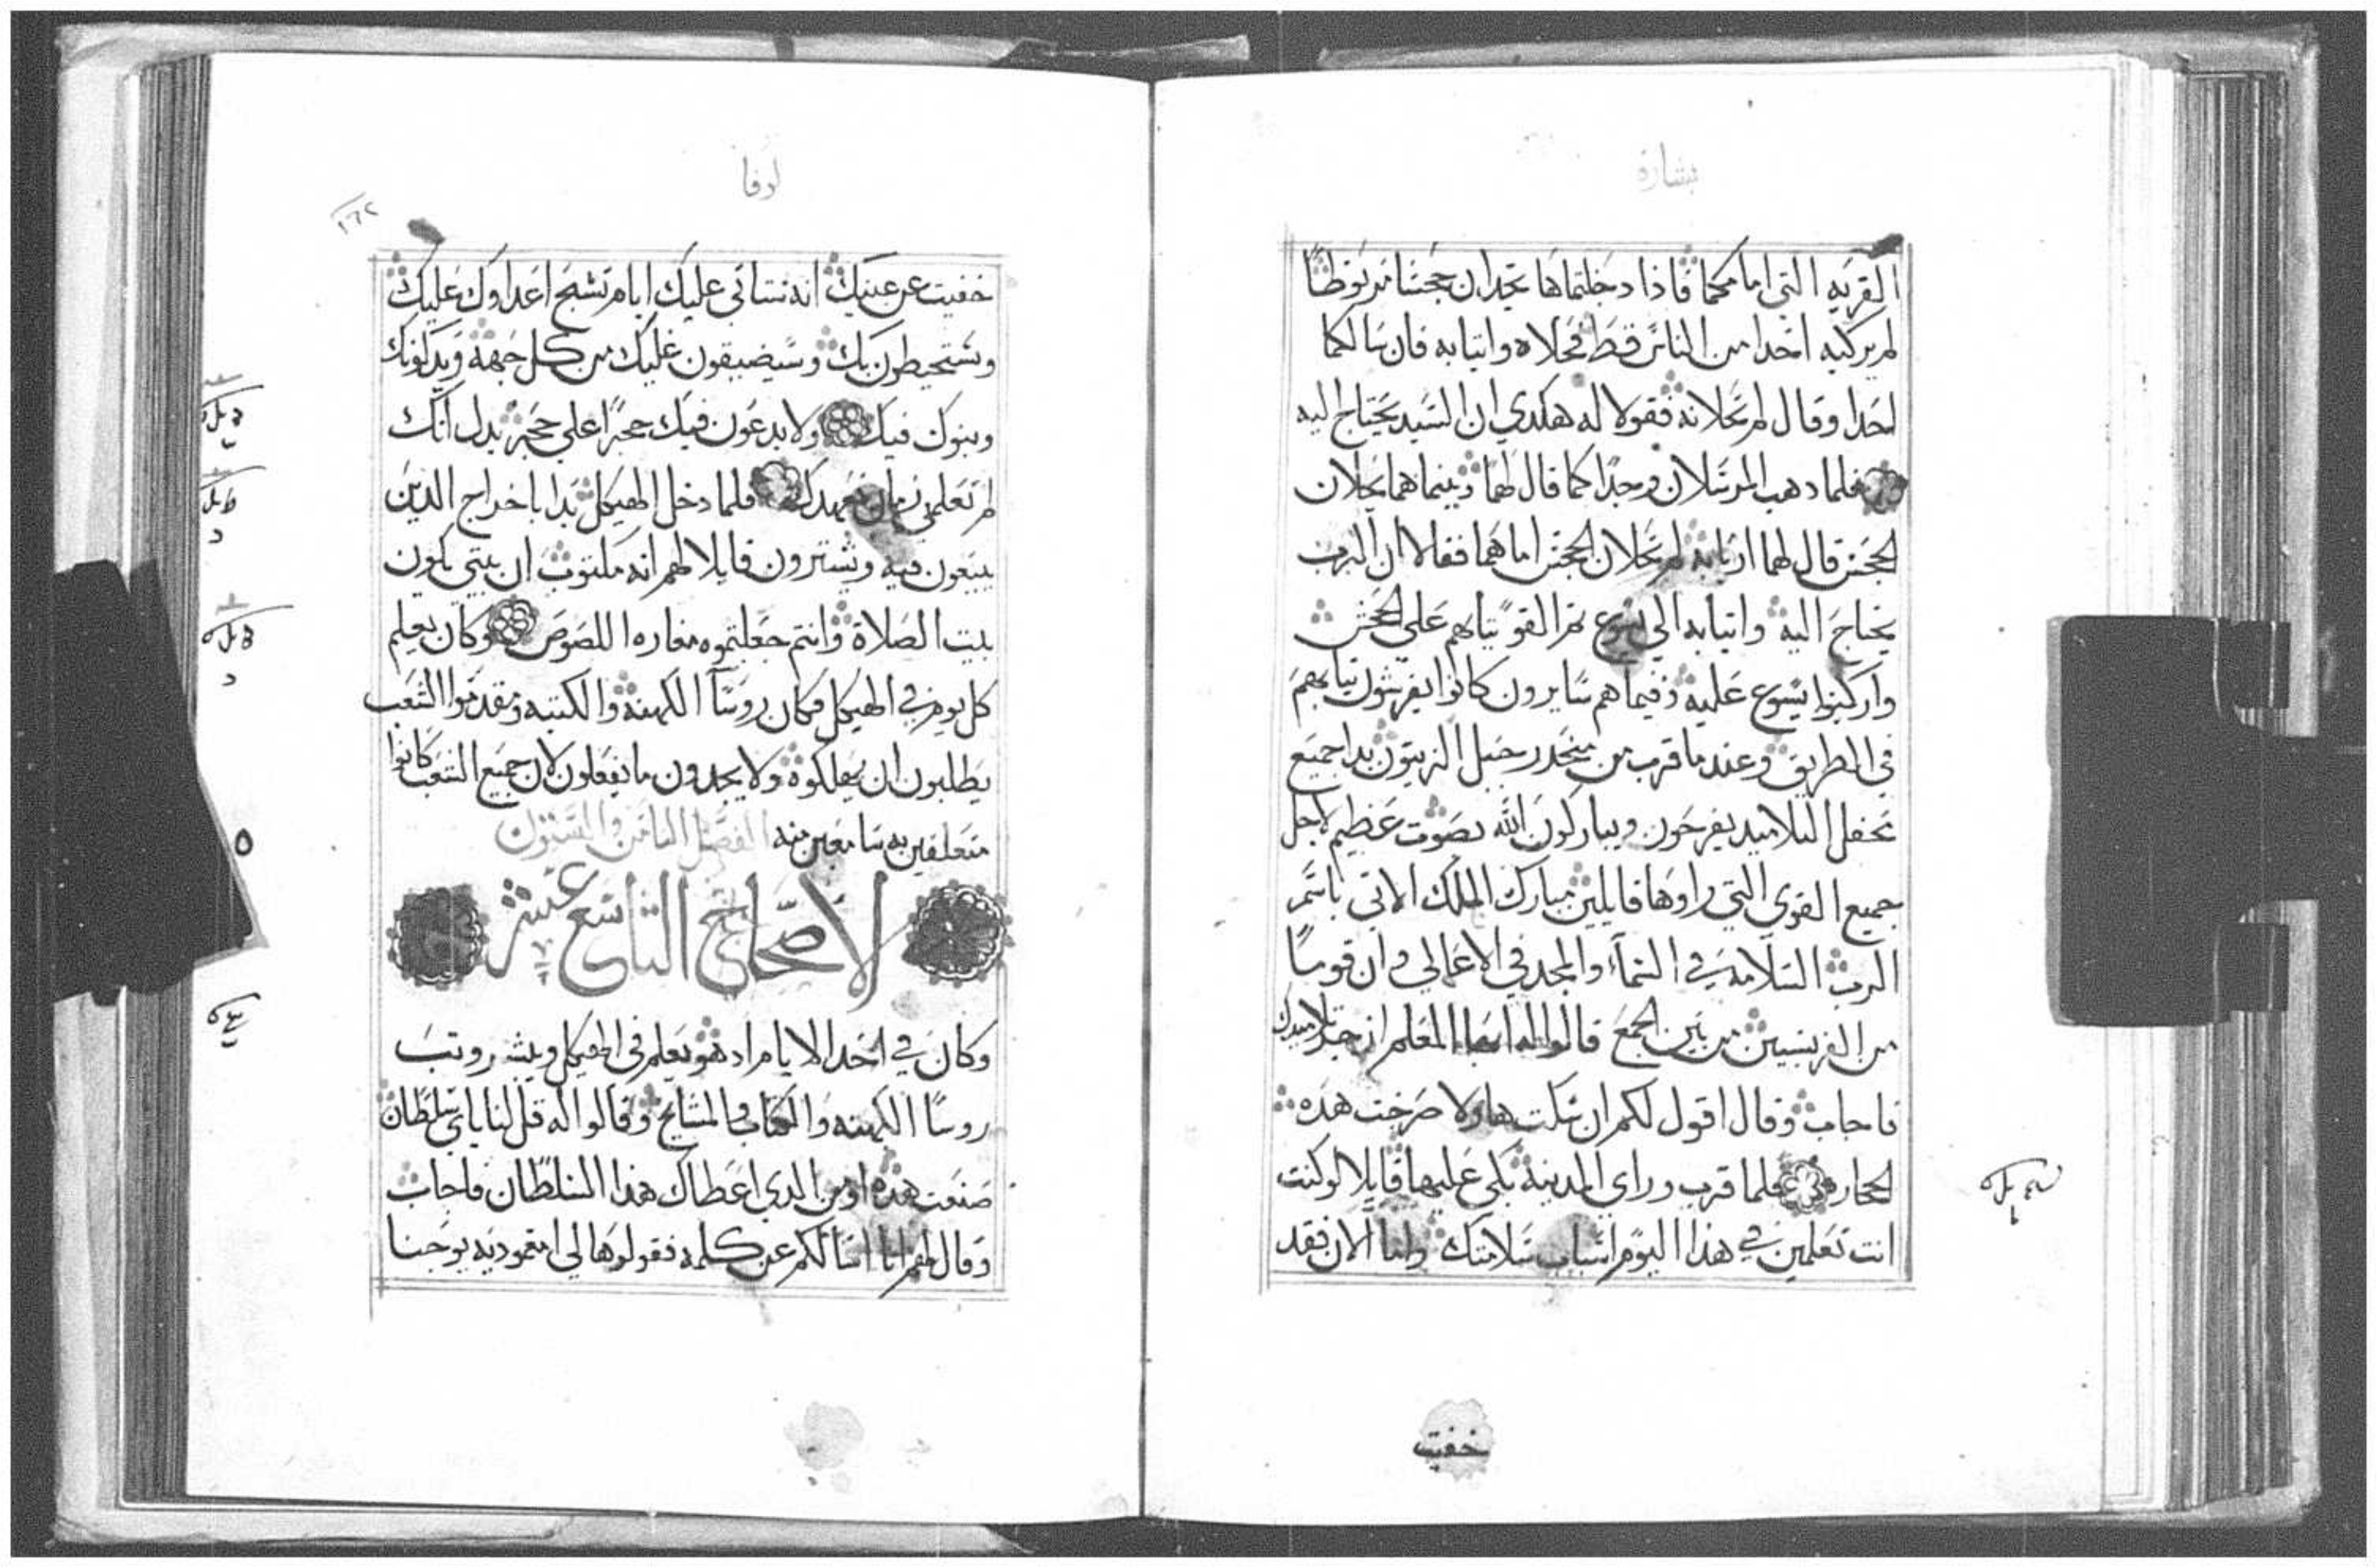 بشارة
القريه التي امامكما فاذا دخلتماها تجدان جحشا مربوطا
لم يركبه احدا من الناس قط فحلاه واتيا به فان سالكما
احدا وقال لم تحلانه فقولا له هكدي ان السيد يحتاج اليه
فلما دهب المرسلان وجدا كما قال لهما وبينما هما يحلان
الجحش قال لهما اربابه لم تحلان الجحش اما هما فقالا ان الرب
يحتاج اليه واتيا به الي يسوع ثم القو ثيابهم علي الجحش
واركبوا يسوع عليه وفيما هم سايرون كانوا يفرشون ثيابهم
في الطريق وعندما قرب من منحدر جبل الزيتون بدا جميع
محفل التلاميد يفرحون ويباركون الله بصوت عظيم لاجل
جميع القوي التي راوها قايلين مبارك الملك الاتي باسم
الرب السلامه في السماء والمجد في الاعالي وان قوما
من الفريسيين من بين الجمع قالوا له ايها المعلم ازجر تلاميدك
فاجاب وقال اقول لكم ان سكت هاولا صرخت هده
الحجاره فلما قرب وراي المدينه بكي عليها قايلا لو كنت
انت تعلمين في هذا اليوم اسباب سلامتك واما الان فقد
خفيت
لوقا
١٦٢
خفيت عن عينيك انه ستاتي عليك ايام تشبح اعداوك عليك
وستحيطون بك وسيضيقون عليك من كل جهه ويدلونك
وبنوك فيك ولا يدعون فيك حجرا علي حجر بدل انك
لم تعلمي زمان تعهدك فلما دخل الهيكل بدا باخراج الدين
يبيعون فيه ويشترون قايلا لهم انه مكتوب ان بيتي يكون
بيت الصلاة وانتم جعلتموه مغاره اللصوص وكان يعلم
كل يوم في الهيكل فكان روسا الكهنه والكتبه ومقدموا الشعب
يطلبون ان يهلكوه ولا يجدون ما يفعلون لان جميع الشعب كانوا
متعلقين به سامعين منه الفصل الثامن والستون
الاصحاح التاسع عشر
وكان في احد الايام اد هو يعلم في الهيكل ويبشر وتب
روسا الكهنه والكتاب والمشايخ وقالوا له قل لنا باي سلطان
صنعت هده او من الدي اعطاك هذا السلطان فاجاب
وقال لهم انا اسالكم عن كلمه فقولوها لي امعموديه يوحنا